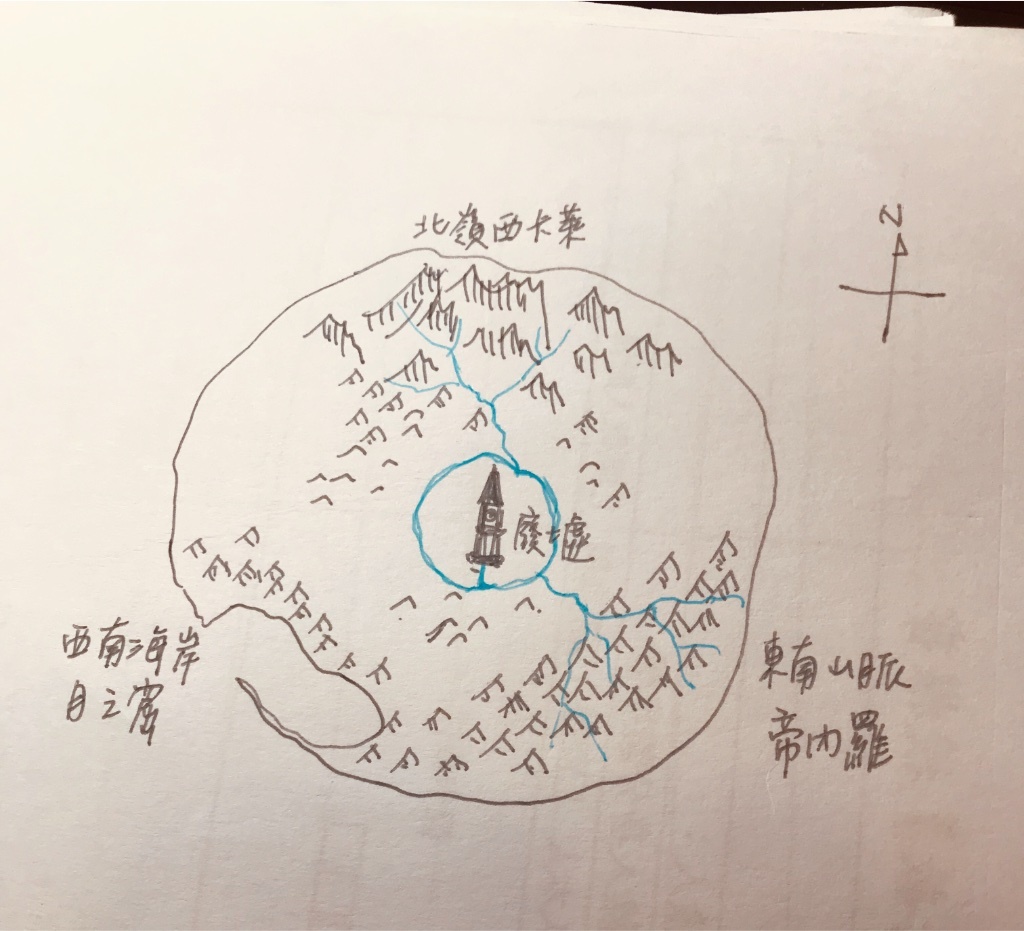 北嶺西卡萊
N
廢墟
西南海岸
月之窩
東南山脈
帝內羅